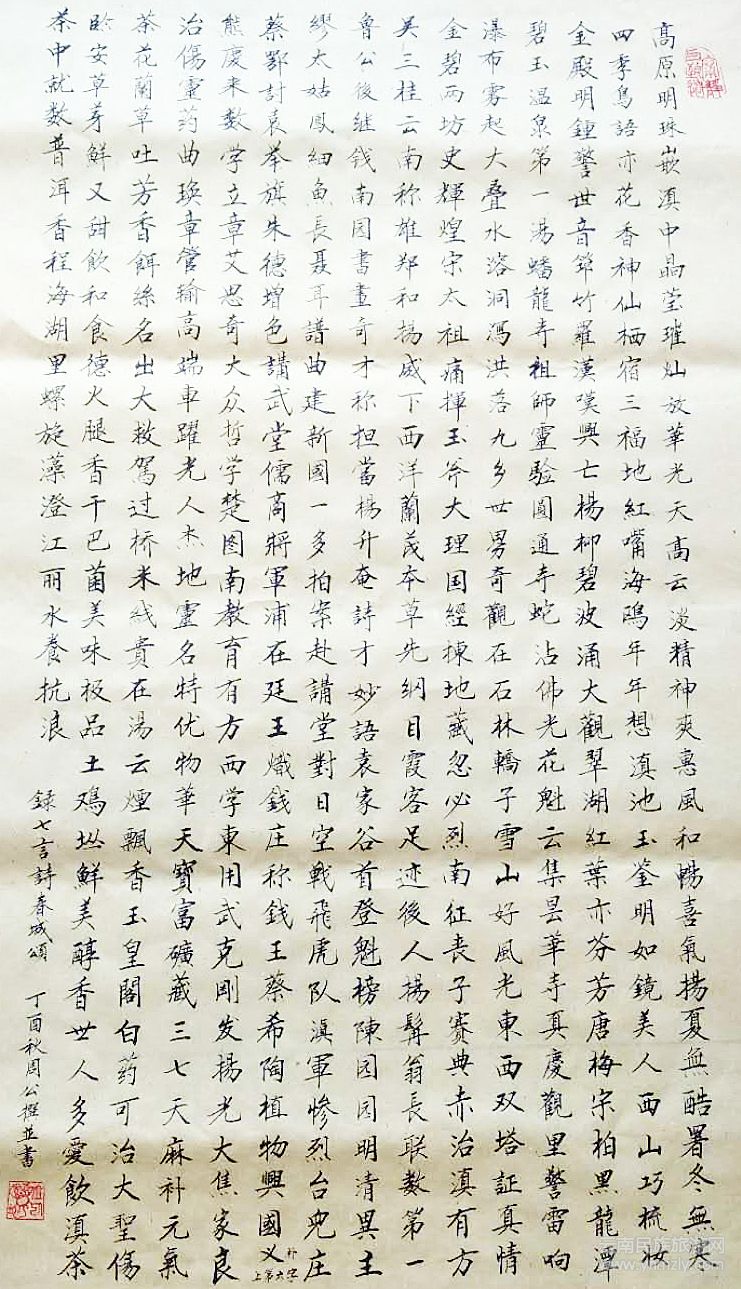 高原明珠嵌滇中晶莹璀灿放華光天高云淡精神爽惠風和暢喜氣揚夏無酷署冬無寒
四季鳥語亦花香神仙栖宿三福地紅嘴海鸥年年想滇池玉鉴明如鏡美人西山巧梳妆
金殿明鍾警世音筇竹羅漢嘆興亡楊柳碧波涌大觀翠湖紅葉亦芬芳唐梅宋柏黑龍潭
碧玉温泉第一湯蟠龍寺祖師靈驗圓通寺蛇沾佛光花魁云集昙華寺真慶觀里警雷响
瀑布雾起大叠水溶洞馮洪落九乡世男奇觀在石林轎子雪山好風光東西双塔証真情
金碧两坊史輝煌宋太祖痛揮玉斧大理国經揀地藏忽必烈南征丧子賽典赤治滇有方
吴三桂云南称雄郑和揚威下西洋蘭茂本草先纲目霞客足迹後人揚髯翁長联数第一
魯公後继钱南园書畫奇才称担當楊升庵詩才妙語袁家谷首登魁榜陳园园明清異主
缪太姑鳳细魚長聂耳譜曲建新國一多拍案赴講堂對日空戰飛虎队滇軍惨烈台兒庄
蔡鄂討袁举旗朱德增色講武堂儒商將軍浦在廷王熾錢庄称錢王蔡希陶植物興國义
补上第六字
熊慶来数学立章艾思奇大众哲学楚图南教育有方西学東用武克剛发揚光大焦家良
治傷靈药曲焕章管输高端車躍光人杰地靈名特优物華天寶富礦藏三七天麻补元氣
茶花蘭草吐芳香餌絲名出大救驾过桥米线貴在湯云煙飄香玉皇閣白药可治大聖傷
安草芽鮮又甜飲和食德火腿香干巴菌美味极品土鸡㙡鮮美醇香世人多愛飲滇茶
茶中就数普洱香程海湖里螺旋藻澄江丽水養抗浪
錄七言詩春城頌 丁酉秋周公撰並書
云南民族旅游网
www.ynmzly.com